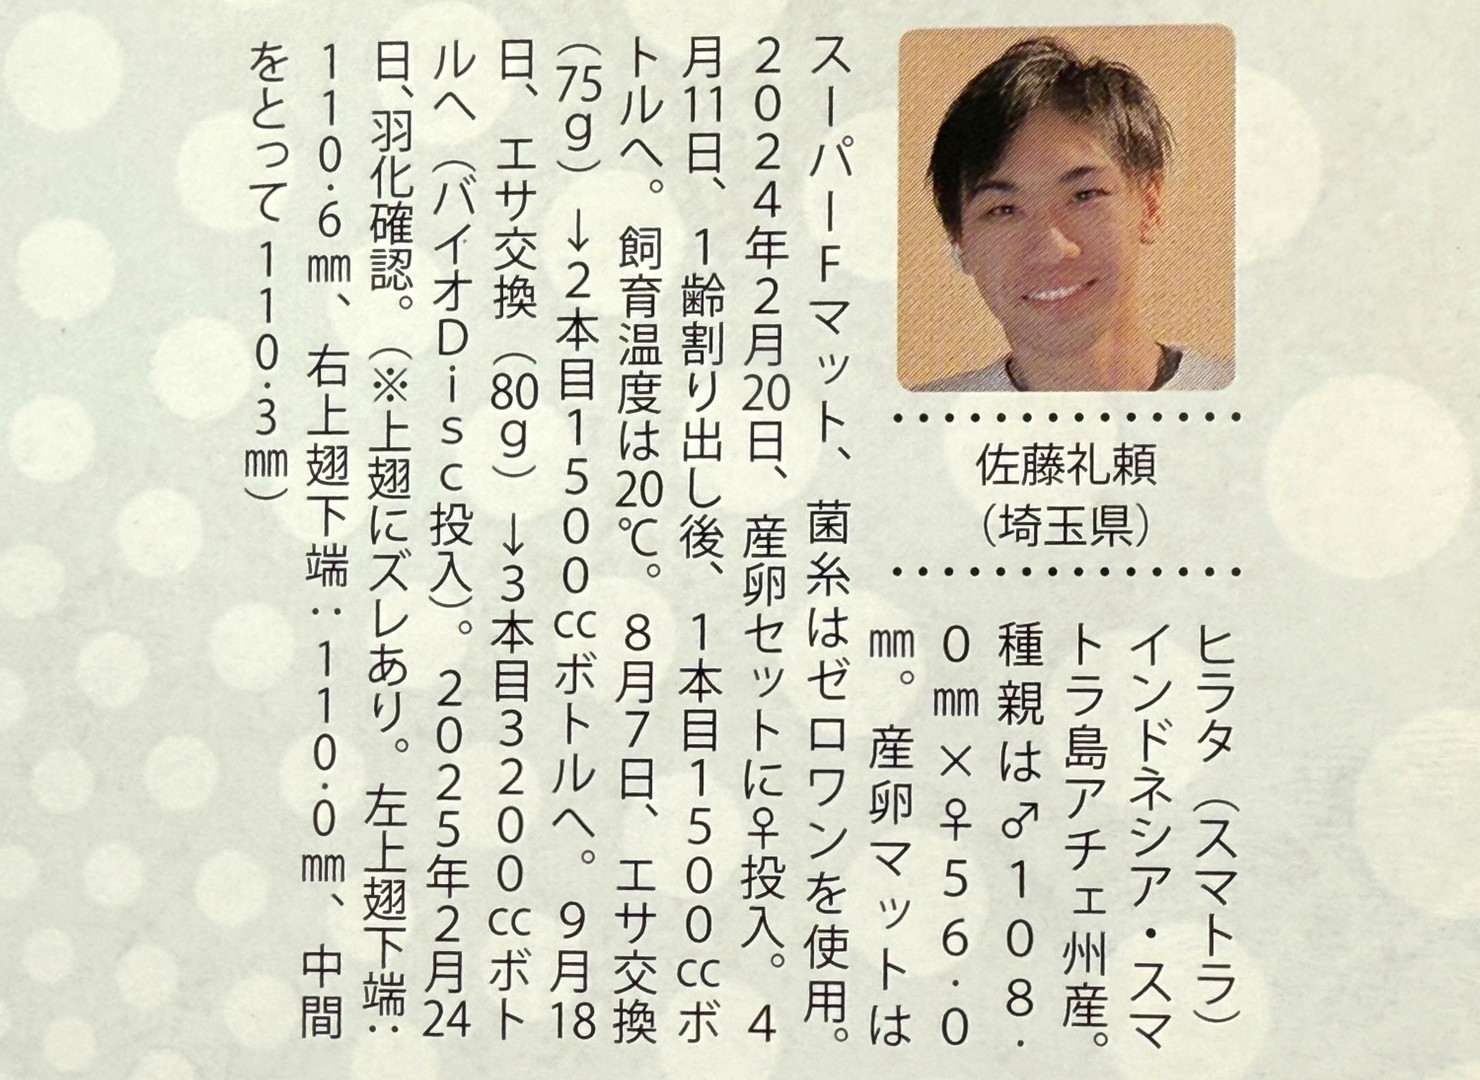 佐藤礼頼
（埼玉県）
ヒラタ（スマトラ）
インドネシア・スマ
トラ島アチェ州産。
種親は♂108．
0㎜×♀56．0
㎜。産卵マットは
スーパーFマット、菌糸はゼロワンを使用。
2024年2月20日、産卵セットに♀投入。4
月11日、1齢割り出し後、1本目1500㏄ボ
トルへ。飼育温度は20℃。8月7日、エサ交換
（75g）→2本目1500㏄ボトルへ。9月18
日、エサ交換（80g）→3本目3200㏄ボト
ルへ（バイオDisc投入）。2025年2月24
日、羽化確認。（※上翅にズレあり。左上翅下端：
110.6㎜、右上翅下端：110.0㎜、中間
をとって110.3㎜）